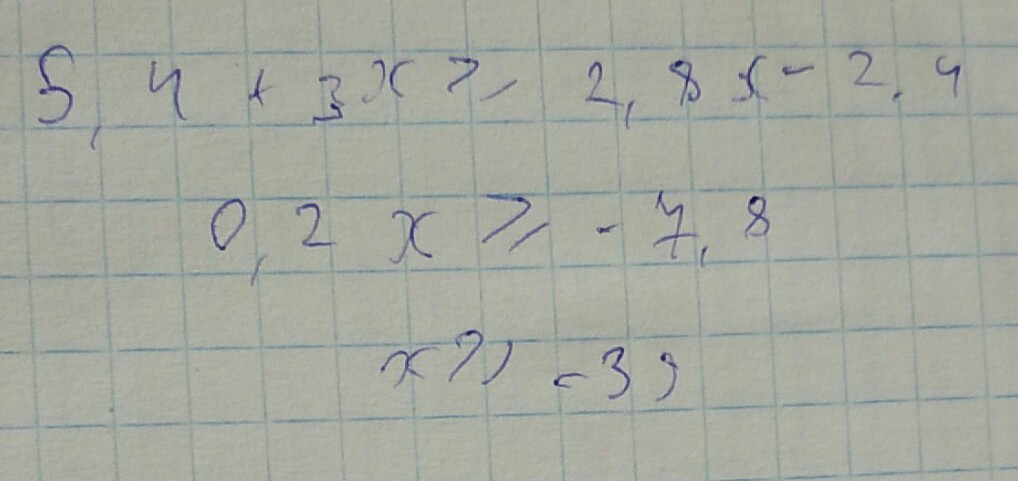 5,4 + 3x ⩾ 2,8x - 2,4
0,2x ⩾ - 7,8
x ⩾ -39